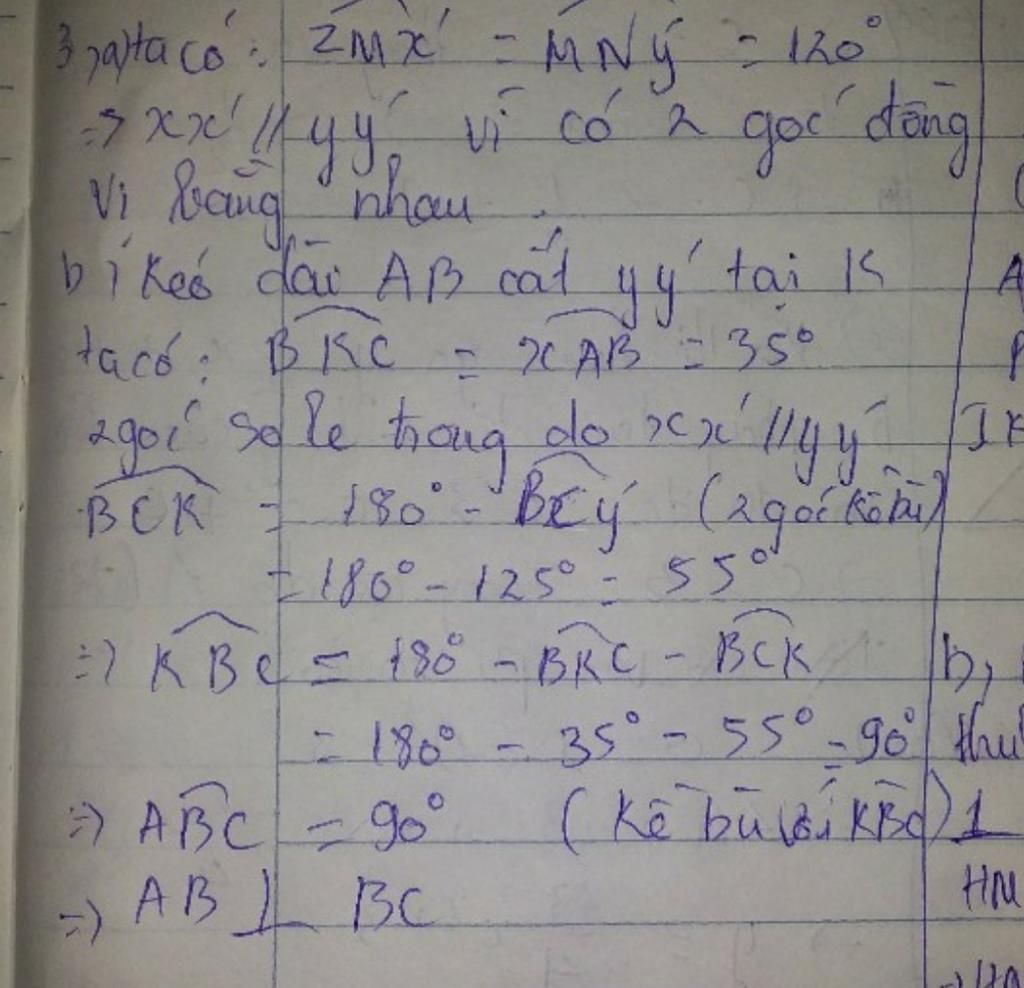 3, a) ta có: zMx' = MNy' = 120°
=> xx' // yy' vì có 2 góc đồng
vị bằng nhau.
b, kéo dài AB cắt yy' tại K
ta có: BKC = xAB = 35°
2 góc so le trong do xx' // yy'
BCK = 180° - BCy' (2 góc kề bù)
= 180° - 125° = 55°
=> KBC = 180° - BKC - BCK
= 180° - 35° - 55° = 90°
=> ABC = 90° (kề bù với KBC)
=> AB ⊥ BC
b,
HM